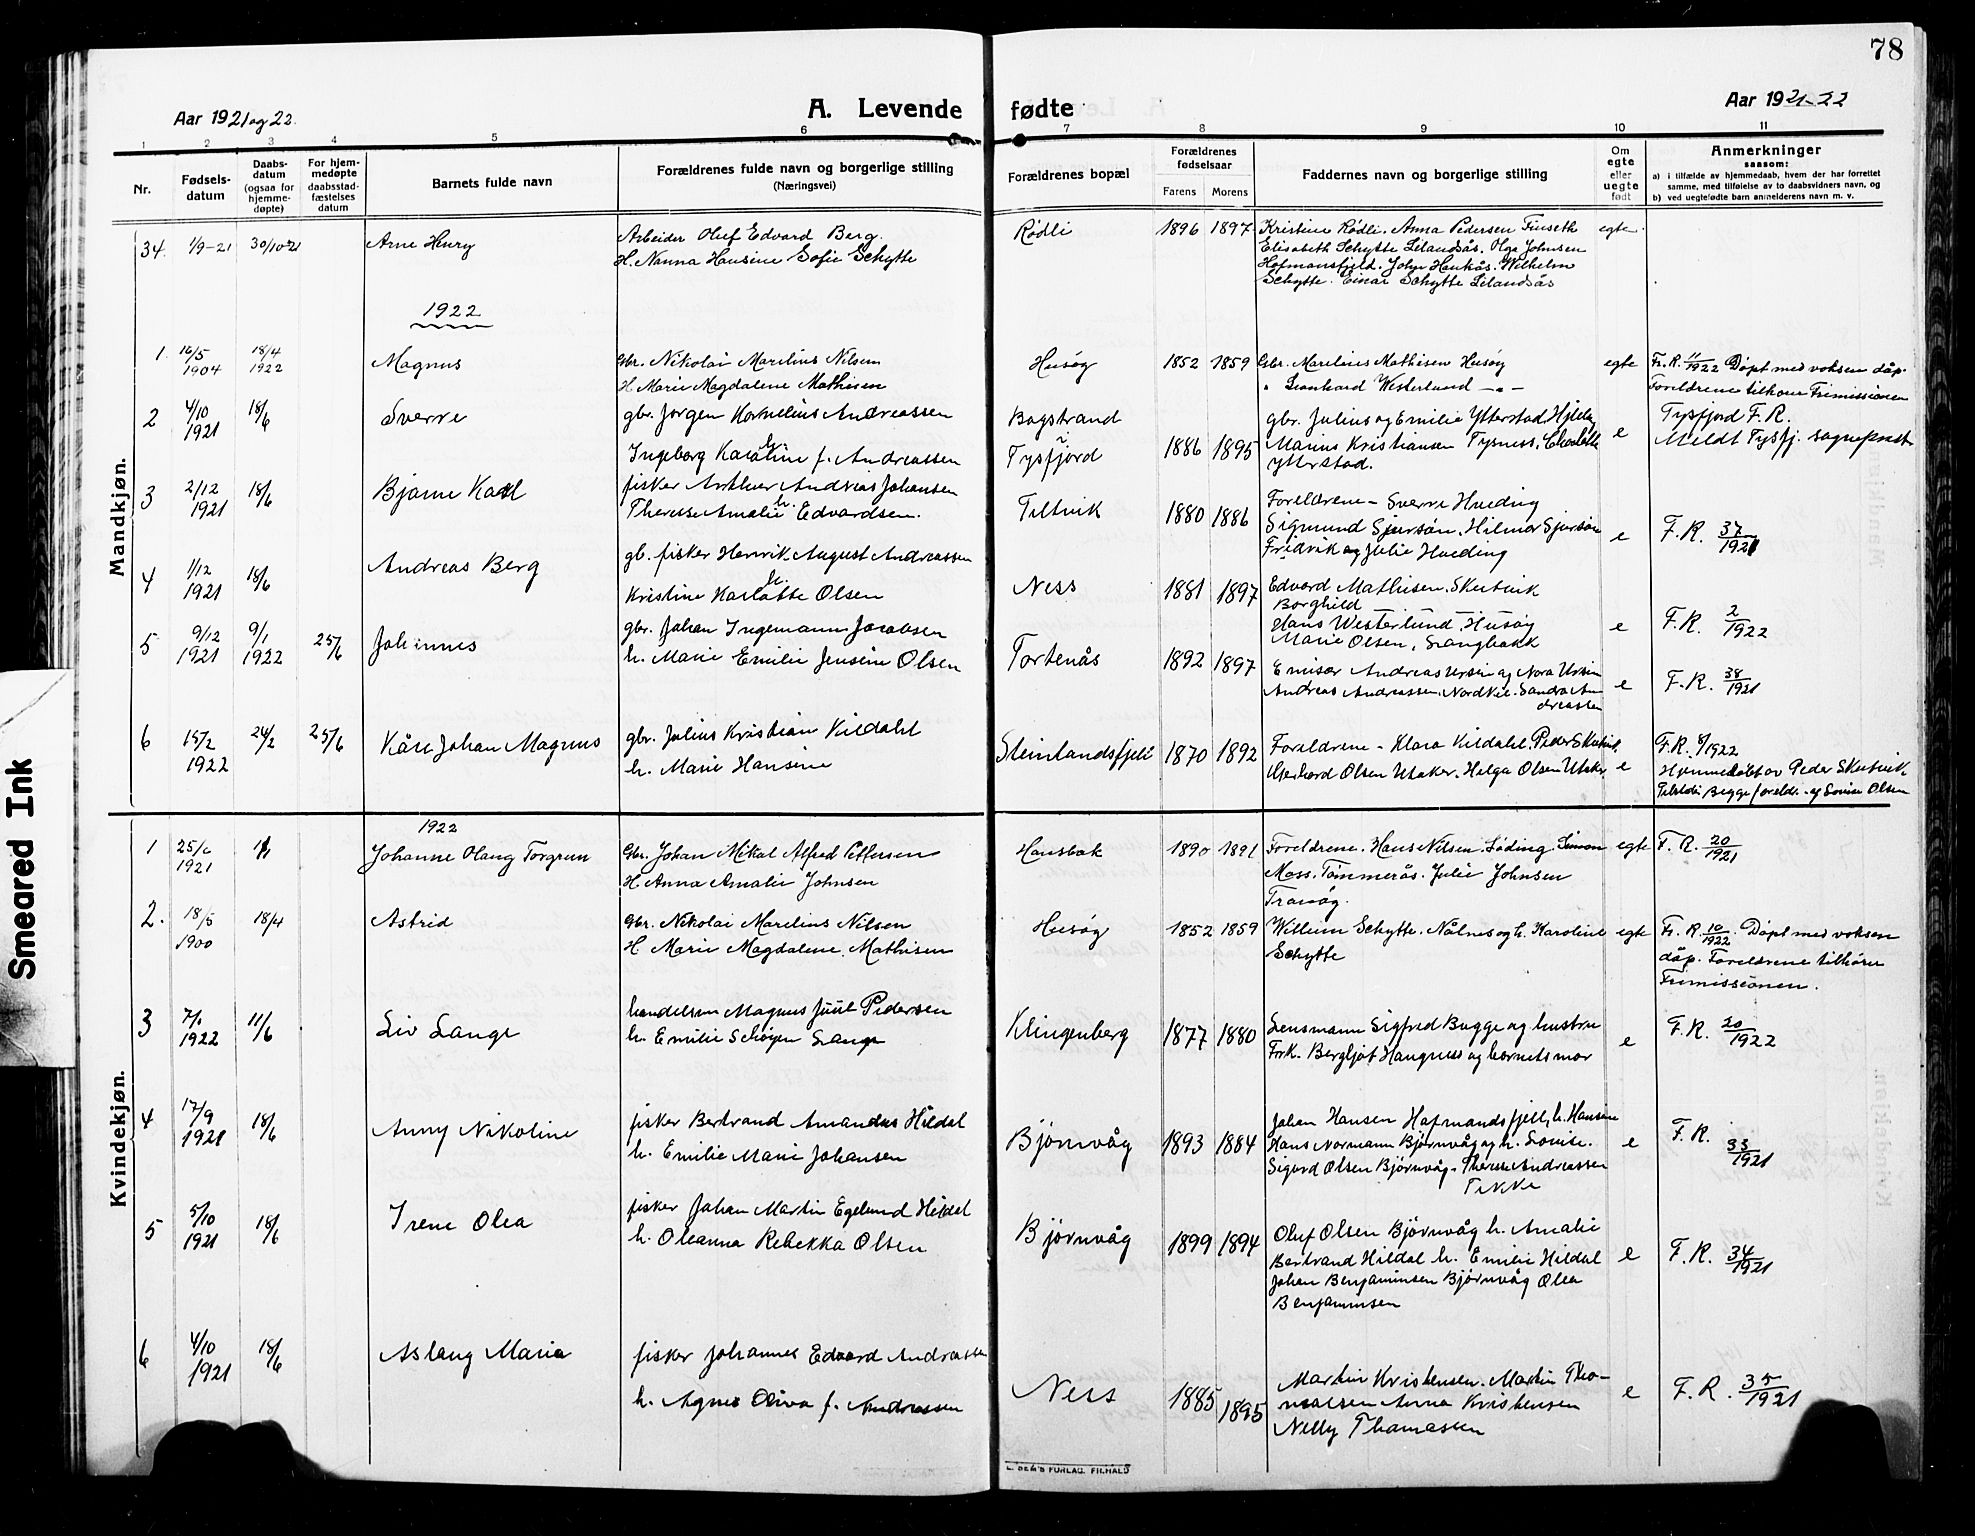 78
Aar 1921 og 22.
A. Levende fødte
Aar 1921-22
1 2 3 4 5 6 7 8 9 10 11
Nr.
Fødsels-
datum
Daabs-
datum
(ogsaa for
hjemme-
døpte)
For hjem-
medøpte
daabsstad-
fæstelses
datum
Barnets fulde navn
Forældrenes fulde navn og borgerlige stilling
(Næringsvei)
Forældrenes bopæl
Forældrenes
fødselsaar
Farens Morens
Faddernes navn og borgerlige stilling
Om
egte
eller
uegte
født
Anmerkninger
saasom:
a) i tilfælde av hjemmedaab, hvem der har forrettet
samme, med tilføielse av to daabsvidners navn, og
b) ved uegtefødte barn anmelderens navn m. v.
Mandkjøn.
34. 1/9-21 30/10-21 Arne Henry
Arbeider Oluf Edvard Berg.
H. Nanna Hansine Sofie Schytte
Rödli 1896 1897
Kristine Rödli. Anna Pedersen Finseth
Elisabeth Schytte Lilandsås. Olga Johnsen
Hofmansfjeld. John Haukås. Wilhelm
Schytte. Einar Schytte Lilandsås
egte
1922
1. 16/5 1904 18/4 1922 Magnus
Gbr. Nikolai Marelius Nilsen
H. Marie Magdalene Mathisen
Husøy 1852 1859
Gbr. Marelius Mathisen Husøy
" Leonhard Westerlund —"—
egte
Fr. R. 11/1922 Döpt med voksen dåp.
Foreldrene tilhører Frimissionen
2 4/10 1921 18/6 Sverre
gbr. Jørgen Kornelius Andreassen
Ingeborg Karoline f. Andreassen
Bogstrand
Tysfjord
1886 1895
gbr. Julius og Emilie Ytterstad,
Marius Kristiansen Tysness,
Ytterstad.
e
Tysfjord F. R.
Meldt Tysfj. sogneprest
3 2/12 1921 18/6 Bjarne Karl
fisker Arthur Andreas Johansen
Therese Amalie Edvardsen.
Tiltvik 1880 1886
Foreldrene - Sverre Hveding
Sigmund Sjursøn, Hilmar Sjursøn
Fridrik og Julie Hveding
e
F.R. 37/1921
4 1/12 1921 18/6 Andreas Berg
gb. fisker Henrik August Andreassen
Kristine Karlotte Olsen
Ness 1881 1897
Edvard Mathisen. Skutvik
Borghild
Hans Westerlund, Husøy
Marie Olsen, Langbakk
e
F.R. 2/1922
5 9/12 1921 9/1 1922 25/6 Johannes
gbr. Johan Ingemann Jacobsen
h. Marie Emilie Jensine Olsen
Tortenås 1892 1897
Emisær Andreas Ursin og Nora Ursin
Andreas Andreassen, Nordkil. Sandra An
dreassen
e
F.R. 38/1921
6 15/2 1922 24/2 25/6 Kåre Johan Magnus
gbr. Julius Kristian Kildahl
h. Marie Hansine
Steinlandsfjell 1870 1892
Foreldrene - Klara Kildahl. Peder Skutvik,
Gerhard Olsen Utaker. Helga Olsen Utaker
e
F.R. 8/1922
Hjemmedøbt av Peder Skutvik
Begge foreldr. og Lovise Olsen
Kvindekjøn.
1922
1 25/6 1921 Johanne Olaug Torgrun
Gbr. Johan Mikal Alfred Pettersen
H. Anna Amalie Johnsen
Hansbak 1890 1891
Foreldrene. Hans Nilsen. Löding. Simon
Moss. Tömmerås. Julie Johnsen
Tranøy.
egte
F. R. 20/1921
2. 18/5 1900 18/4 Astrid
Gbr. Nikolai Marelius Nilsen
H. Marie Magdalene. Mathisen
Husøy 1852 1859
Willum Schytte. Nålnes og h. Karoline
Schytte
egte
Fr. R. 10/1922. Döpt med voksen
dåp. Foreldrene tilhører
Frimissionen.
3 7/1 1922 11/6 Liv Lange
handelsm Magnus Juul Pedersen
h. Emilie Schøyen Lange
Klingenberg 1877 1880
Lensmann Sigfred Bugge og hustru
Frk. Bergljot Haugness og barnets mor
e
F.R. 20/1922
4 17/9 1921 18/6 Anny Nikoline
fisker Bertrand Amandus Hildal
h. Emilie Marie Johansen
Bjørnvåg 1893 1884
Johan Hansen Hafmandsfjell, h. Hansine
Hans Normann Bjørnvåg og h. Lovise.
Sigurd Olsen Bjørnvåg - Therese Andreassen
e
F. R. 33/1921
5 5/10 1921 18/6 Irene Olea
fisker Johan Martin Egelund Hildal
h. Oleanna Rebekka Olsen
Bjørnvåg 1899 1894
Oluf Olsen Bjørnvåg h. Amalie
Bertrand Hildal h. Emilie Hildal
Johan Benjaminsen Bjørnvåg Olea
Benjaminsen
e
F. R. 34/1921
6 4/10 1921 18/6 Aslaug Marie
fisker Johannes Edvard Andreassen
h. Agnes Oliva f. Andreassen
Ness 1885 1895
Martin Kristensen. Martin Tho-
massen Anna Kristensen
Nelly Thomassen
e
F. R. 35/1921
E. SEM'S FORLAG, FR.HALD
Smeared Ink